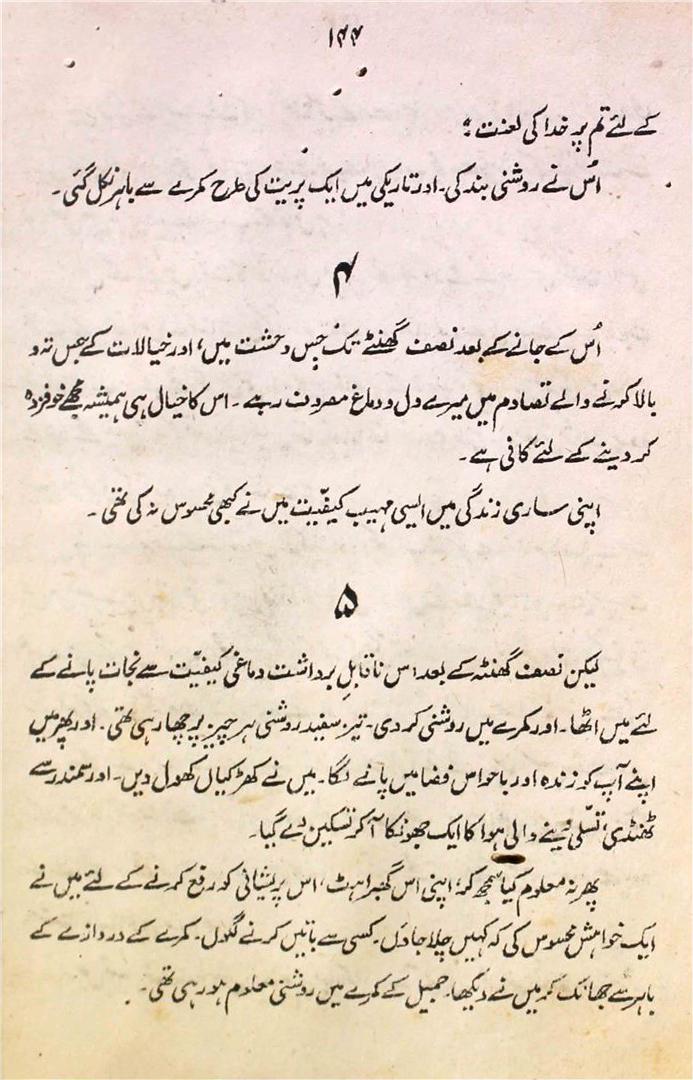 ۱۴۴
کے لئے تم پر خدا کی لعنت؛
اُس نے روشنی بند کی۔ اور تاریکی میں ایک پریت کی طرح کمرے سے باہر نکل گئی۔
۴
اُس کے جانے کے بعد نصف گھنٹے تک جس وحشت میں، اور خیالات کے جس تہ و
بالا کرنے والے تصادم میں میرے دل و دماغ مصروف رہے۔ اس کا خیال ہی ہمیشہ مجھے خوفزدہ
کر دینے کے لئے کافی ہے۔
اپنی ساری زندگی میں ایسی مہیب کیفیّت میں نے کبھی محسوس نہ کی تھی۔
۵
لیکن نصف گھنٹہ کے بعد اس ناقابلِ برداشت دماغی کیفیّت سے نجات پانے کے
لئے میں اٹھا۔ اور کمرے میں روشنی کر دی۔ تیز سفید روشنی ہر چیز پر چھا رہی تھی۔ اور پھر میں
اپنے آپ کو زندہ اور باحواس فضا میں پانے لگا۔ میں نے کھڑکیاں کھول دیں۔ اور سمندر سے
ٹھنڈی، تسلّی دینے والی ہوا کا ایک جھونکا آ کر تسکین دے گیا۔
پھر نہ معلوم کیا سمجھ کر، اپنی اس گھبراہٹ، اس پریشانی کو رفع کرنے کے لئے میں نے
ایک خواہش محسوس کی کہ کہیں چلا جاؤں۔ کسی سے باتیں کرنے لگوں۔ کمرے کے دروازے کے
باہر سے جھانک کر میں نے دیکھا۔ جمیل کے کمرے میں روشنی معلوم ہو رہی تھی۔